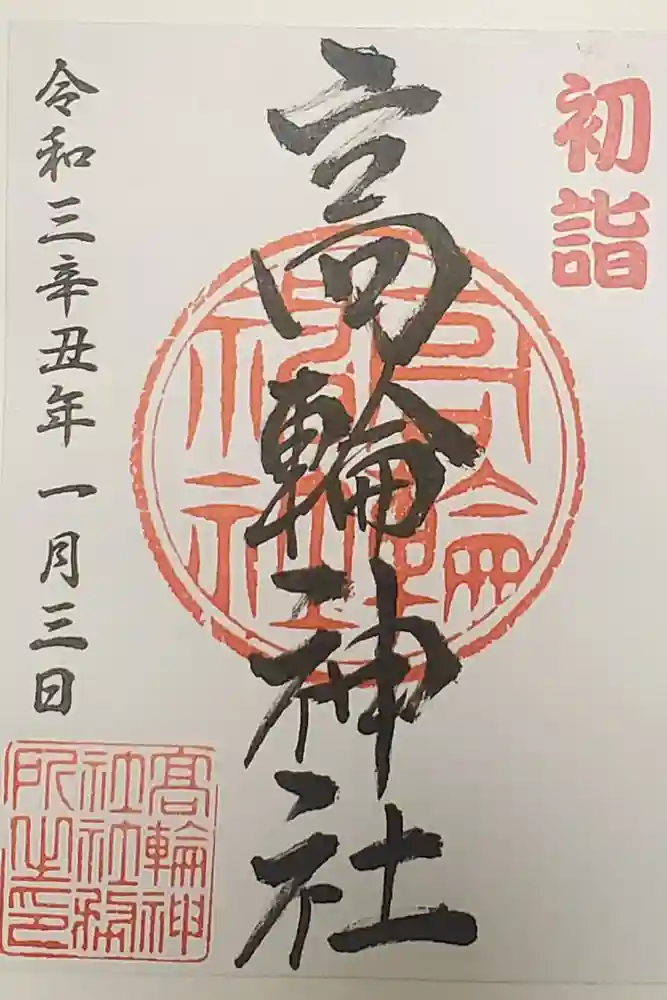 初詣
高輪神社
高輪神社
令和三辛丑年一月三日
髙輪神社社務所之印